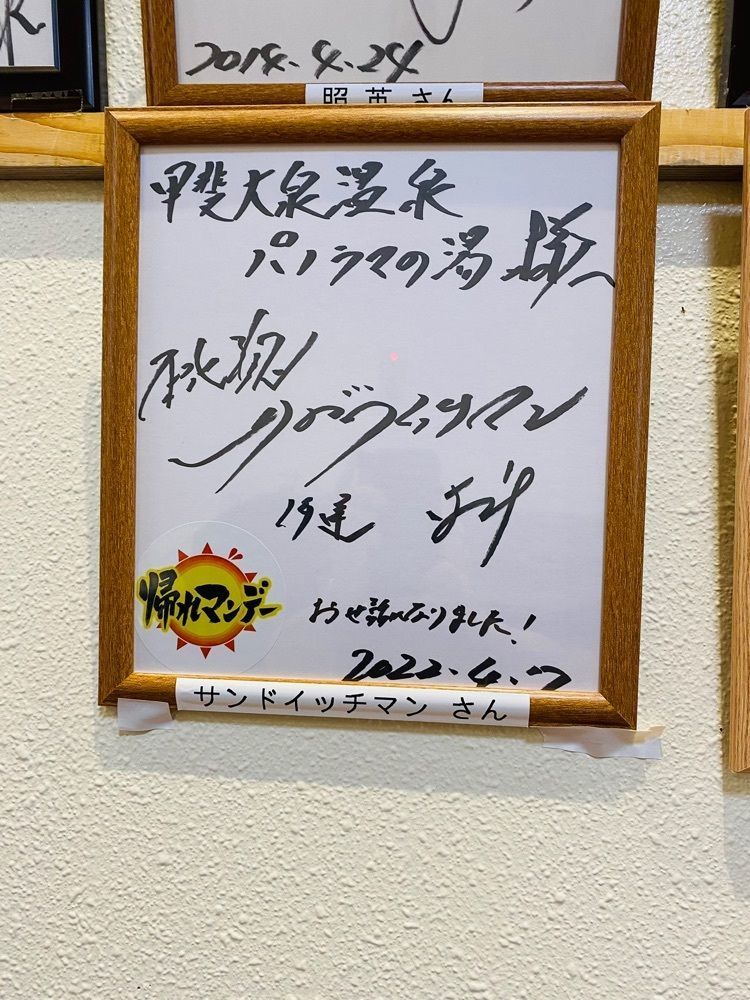 2014.4.24
照英さん
甲斐大泉温泉
パノラマの湯 様へ
サンドウィッチマン
伊達
帰れマンデー
お世話になりました!
2022.4.27
サンドイッチマン さん